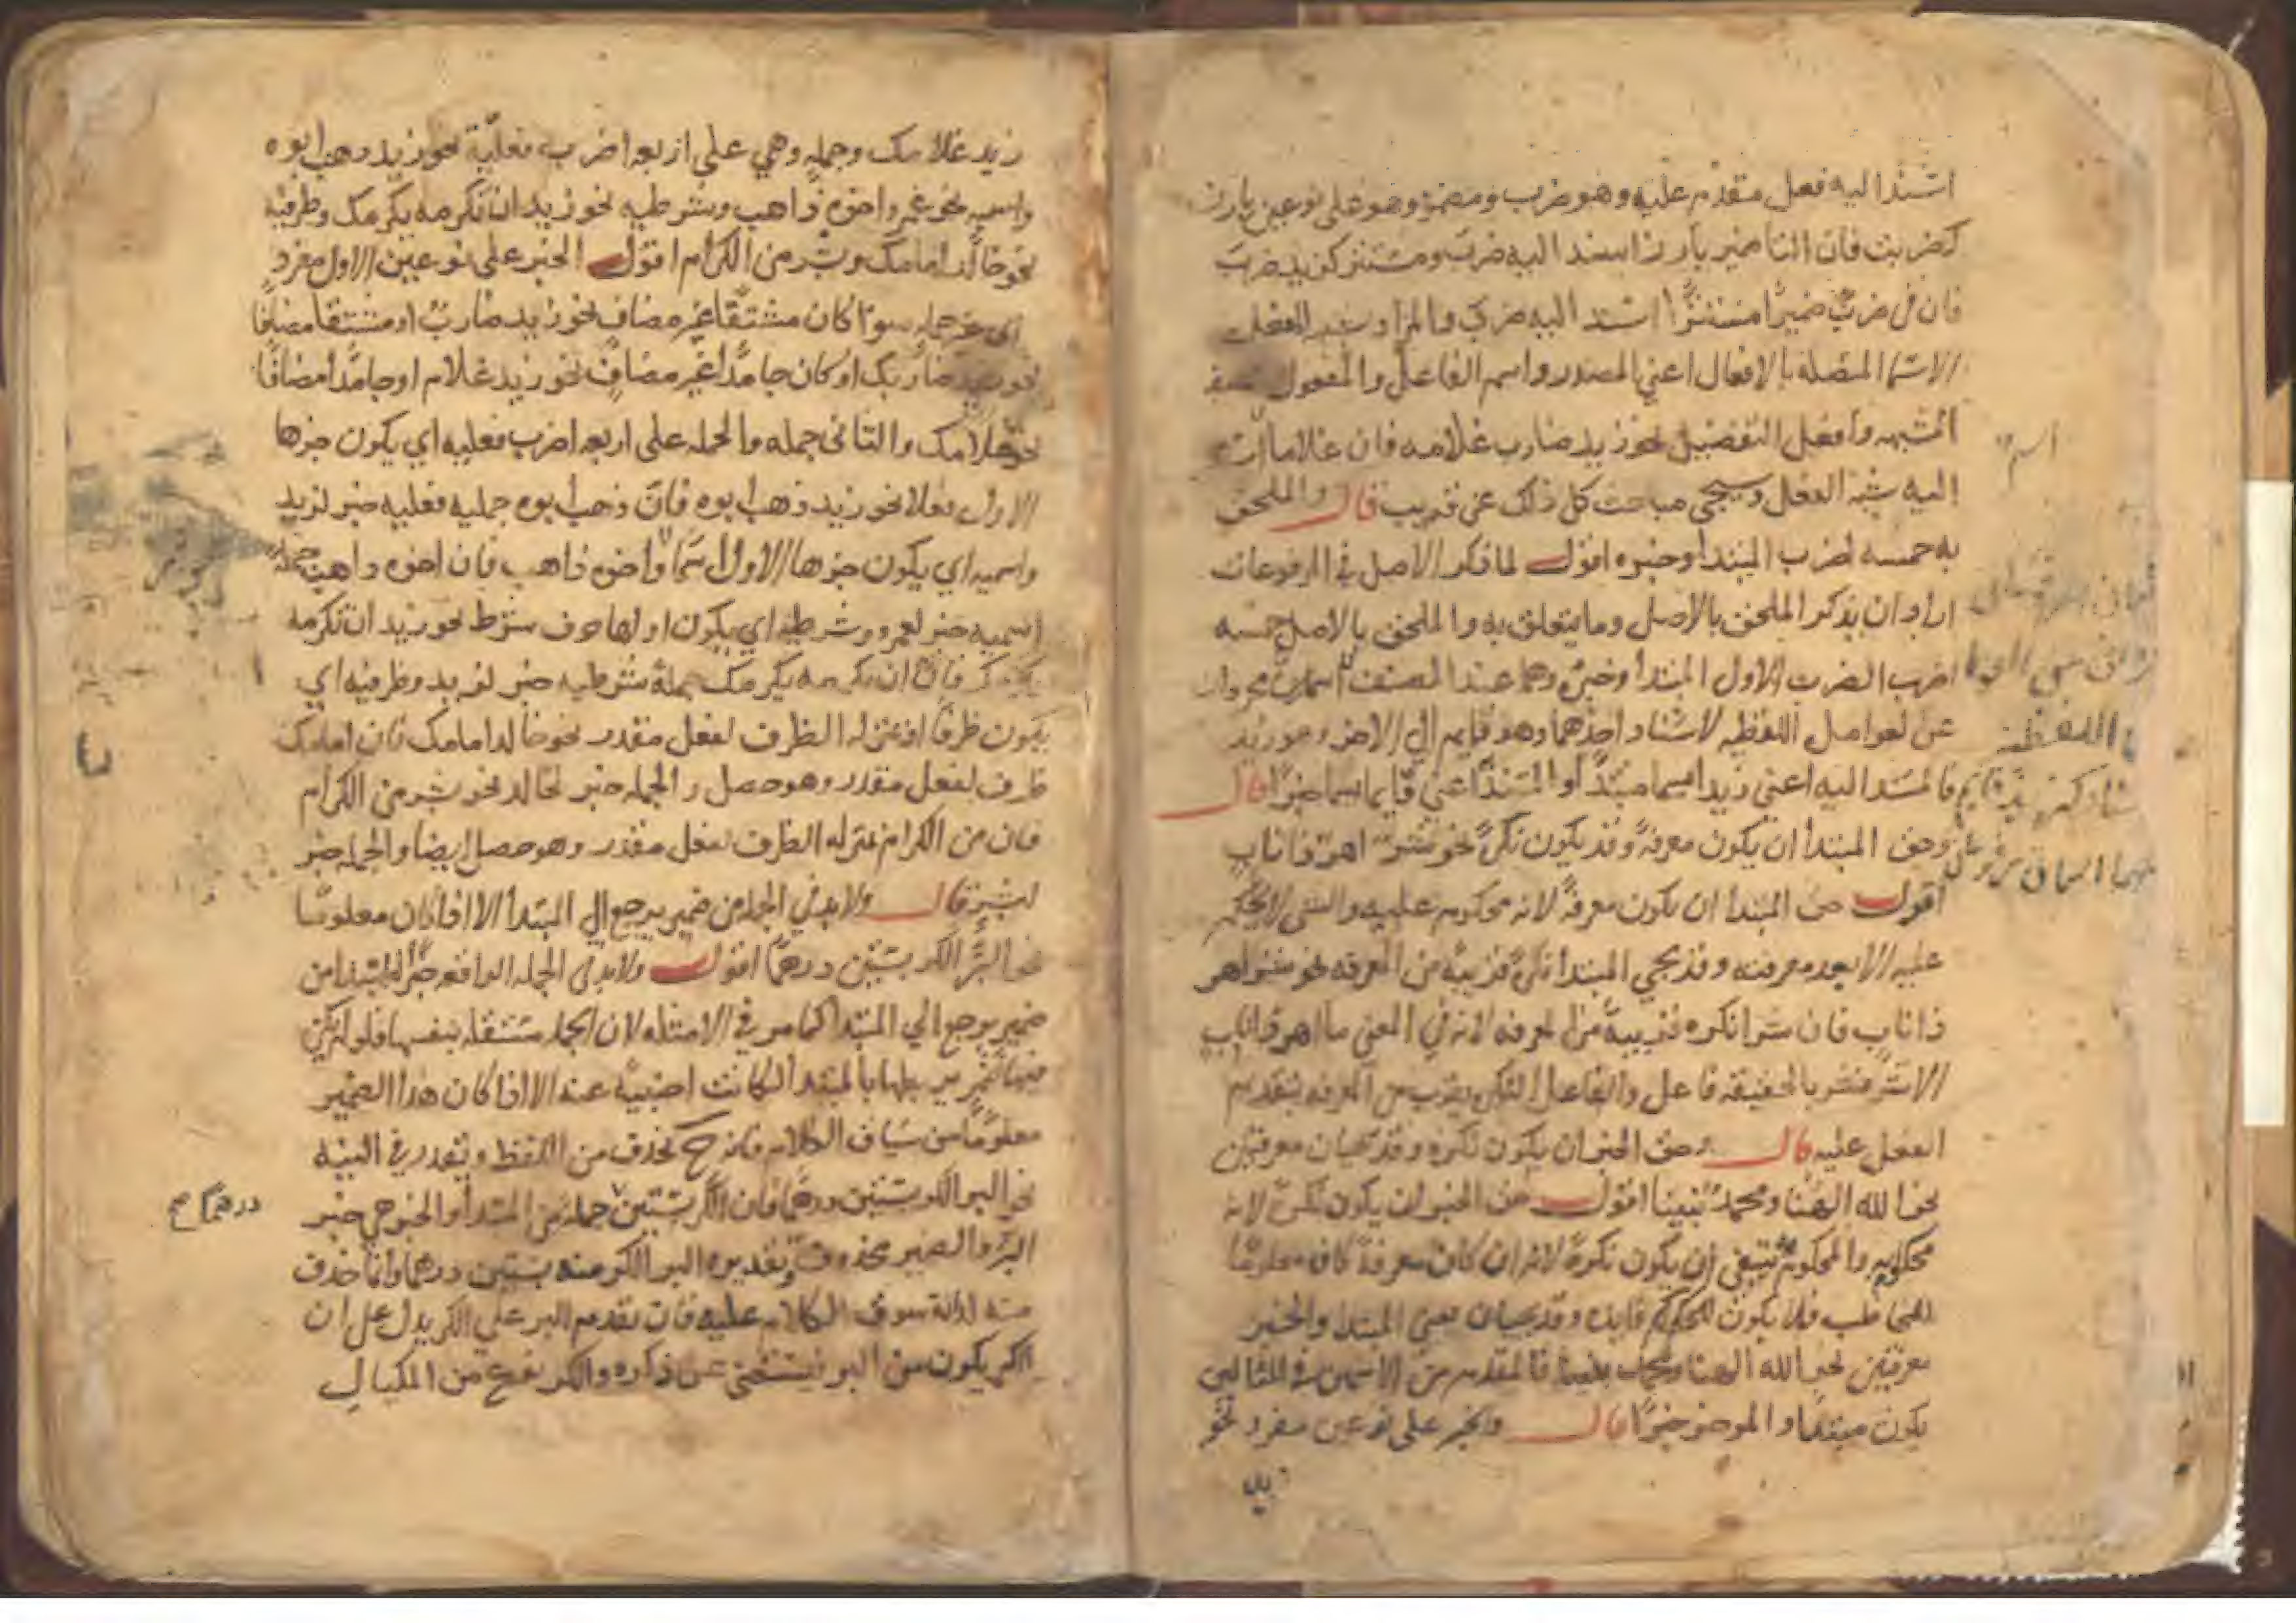 اسند اليه فعل متقدم عليه وهو ضرب ومضمر وهو على نوعين بارز
كضربت فان التا ضمير بارز اسند اليه ضرب ومستتر كزيد ضرب
فان في ضرب ضميرا مستترا اسند اليه ضرب والمراد بشبه الفعل
الاسما المتصلة بالافعال اعني المصدر واسم الفاعل والمفعول
المشبهه وافعل التفضيل نحو زيد ضارب غلامه فان غلامه
اليه شبه الفعل وسيجي مباحث كل ذلك عن قريب قال والملحق
به خمسه اضرب المبتدا وخبره اقول لما ذكر الاصل في المرفوعات
اراد ان يذكر الملحق بالاصل وما يتعلق به والملحق بالاصل خمسه
اضرب الضرب الاول المبتدا وخبره وهما عند المصنف اسمان مجردان
عن العوامل اللفظيه لاسناد احدهما وهو قايم الي الاخر وهو زيد
فالمسند اليه اعني زيد اسما مبتدا والمسند اعني قايما اسما خبرا قال
وحق المبتدا ان يكون معرفة وقد يكون نكرة نحو شر اهر ذا ناب
اقول حق المبتدا ان يكون معرفة لانه محكوم عليه والشي لا يحكم
عليه الا بعد معرفته وقد يجي المبتدا نكرة قريبة من المعرفه نحو شر اهر
ذا ناب فان شرا نكره قريبة من المعرفه لانه في المعني ما اهر ذا ناب
الا شر فشر بالحقيقة فاعل والفاعل النكره يقرب من المعرفه بتقديم
الفعل عليه قال وحق الخبر ان يكون نكره وقد يجيان معرفتين
نحو الله الهنا ومحمد نبينا اقول حق الخبر ان يكون نكرة لانه
محكوم به والمحكوم به ينبغي ان يكون نكرة لانه ان كان معرفة كان معلوما
للمخاطب فلا يكون للحكم فايده وقد يجيان يعني المبتدا والخبر
معرفتين نحو الله الهنا ومحمد نبينا فالمقدم من الاسمين في المثالين
يكون مبتدا والموخر خبرا قال والخبر على نوعين مفرد نحو
زيد
اسم
اللفظية
زيد غلامك وجمله وهي على اربعه اضرب فعلية نحو زيد ذهب ابوه
واسميه نحو عمرو اخوه ذاهب وشرطيه نحو زيد ان تكرمه يكرمك وظرفية
نحو خالد امامك وبشر من الكرام اقول الخبر على نوعين الاول مفرد
اي غير جمله سوا كان مشتقا غير مضاف نحو زيد ضارب او مشتقا مضافا
نحو زيد ضاربك او كان جامدا غير مضاف نحو زيد غلام او جامدا مضافا
نحو غلامك والثاني جمله والجمله على اربعه اضرب فعليه اي يكون جزها
الاول فعلا نحو زيد ذهب ابوه فان ذهب ابوه جمله فعليه خبر لزيد
واسميه اي يكون جزها الاول اسما واخوه ذاهب فان اخوه ذاهب جملة
اسميه خبر لعمرو وشرطيه اي يكون اولها حرف شرط نحو زيد ان تكرمه
يكرمك فان ان تكرمه يكرمك جملة شرطيه خبر لزيد وظرفيه اي
يكون ظرفا او بمنزله الظرف لفعل مقدر نحو خالد امامك فان امامك
ظرف لفعل مقدر وهو حصل والجمله خبر لخالد نحو بشر من الكرام
فان من الكرام بمنزله الظرف لفعل مقدر وهو حصل ايضا والجمله خبر
لبشر قال ولا بد في الجمله من ضمير يرجع الي المبتدا الا اذا كان معلوما
نحو البر الكر بستين درهما اقول ولا بد في الجمله الواقعه خبرا للمبتدا من
ضمير يرجع الي المبتدا كما مر في الامثله لان الجمله مستقله بنفسها فلو لم يكن
فيها ضمير يربطها بالمبتدا لكانت اجنبية عنه الا اذا كان هذا الضمير
معلوما من سياق الكلام فانه ح يحذف من اللفظ ويقدر في النيه
نحو البر الكر بستين درهما فان الكر بستين جمله من المبتدا والخبر هي خبر
البر والضمير محذوف وتقديره البر الكر منه بستين درهما وانما حذف
منه لدلالة سوق الكلام عليه فان تقديم البر علي الكر يدل على ان
الكر يكون من البر فيستغني عن ذكره والكر نوع من المكيال
درهما صح